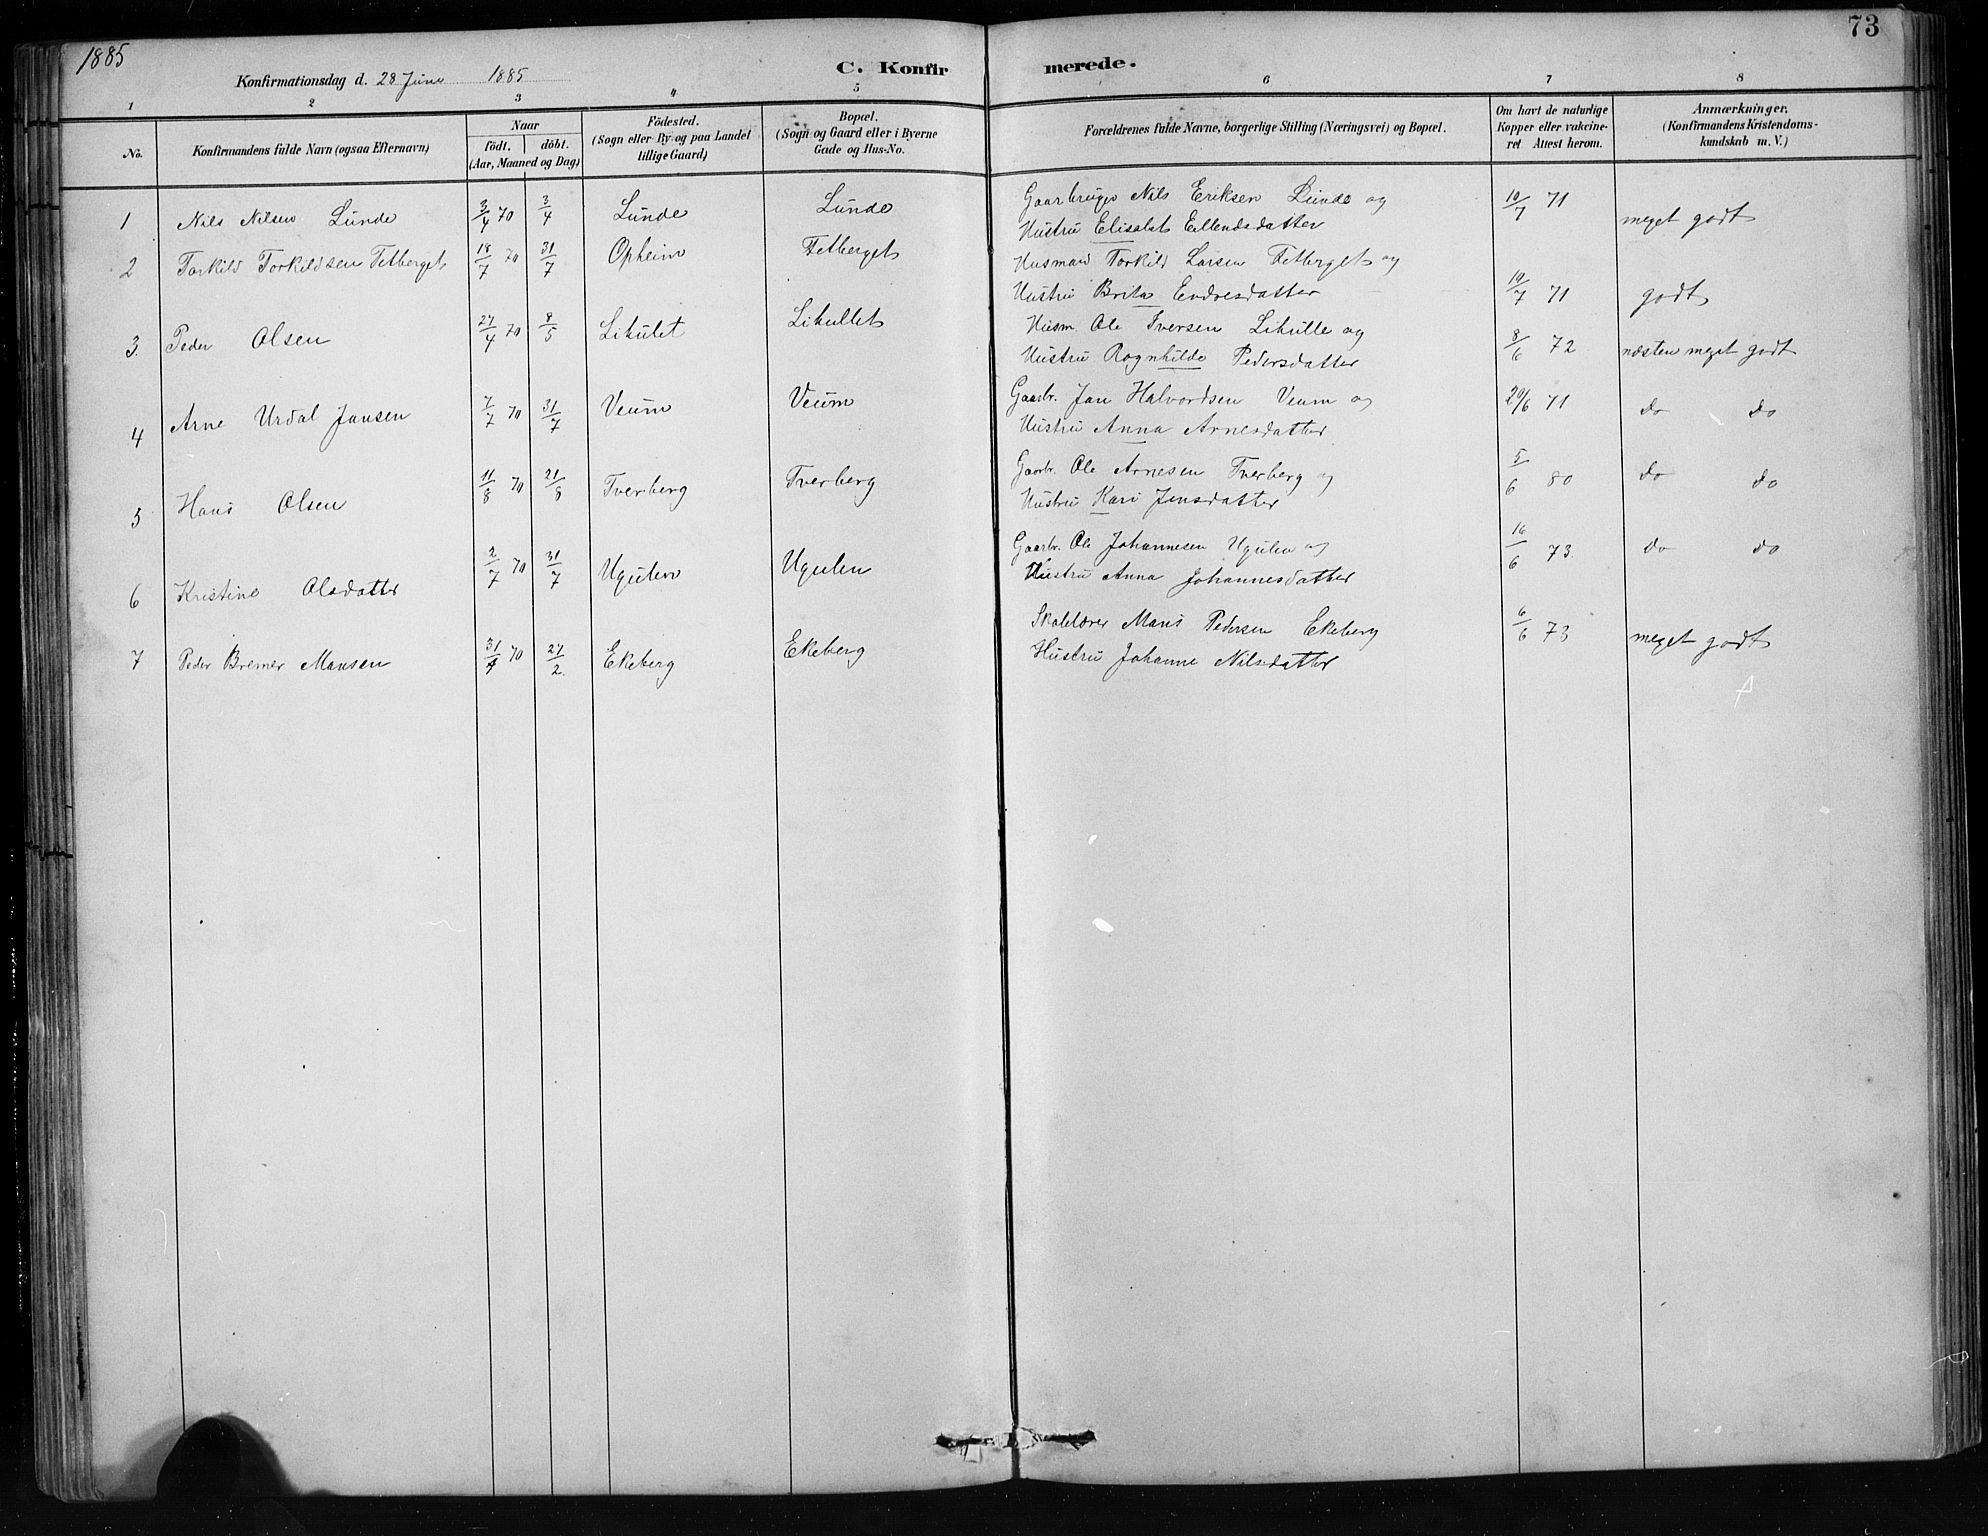 1885
73
Konfirmationsdag d. 28 Juni 1885
C. Konfirmerede.
1 2 3 4 5 6 7 8
No.
Konfirmandens fulde Navn (ogsaa Efternavn)
Naar
födt. döbt.
(Aar, Maaned og Dag)
Födested.
(Sogn eller By og paa Landet
tillige Gaard)
Bopæl.
(Sogn og Gaard eller i Byerne
Gade og Hus-No.
Forældrenes fulde Navne, borgerlige Stilling (Næringsvei) og Bopæl.
Om havt de naturlige
Kopper eller vakcine-
ret. Attest herom.
Anmærkninger.
(Konfirmandens Kristendoms-
kundskab m. V.)
1 Nils Nilsen Lunde 3/4 70 3/4 Lunde Lunde Gaarbruger Nils Eriksen Lunde og 10/7 71 meget godt
Hustru Elisabet Ellendsdatter
2 Torkild Torkildsen Fetberget 18/7 70 31/7 Opheim Fetberget Husmand Torkild Larsen Fetberget og
Hustru Brita Endresdatter 10/7 71 godt
3. Peder Olsen 27/4 70 8/5 Likulet Likullet Husm. Ole Iversen Likulle og
Hustru Rognhilde Pedersdatter 8/6 72 næsten meget godt
4 Arne Urdal Jansen 7/7 70 31/7 Veum Veum Gaarbr. Jan Halvordsen Veum og 20/6 71 do do
Hustru Anna Arnesdatter
5 Hans Olsen 11/8 70 21/8 Tverberg Tverberg Gaarbr. Ole Arnesen Tverberg og 5/6 80 do do
Hustru Kari Jensdatter
6 Kristine Olsdatter 2/7 70 31/7 Ugulen Ugulen Gaarbr. Ole Johannesen Ugulen og 16/6 73. do do
Hustru Anna Johannesdatter
7 Peder Bremer Mansen 31/1 70 27/2. Ekeberg Ekeberg Skolelærer Mans Pedersen Ekeberg 6/6 73 meget godt
Hustru Johanne Nilsdatter